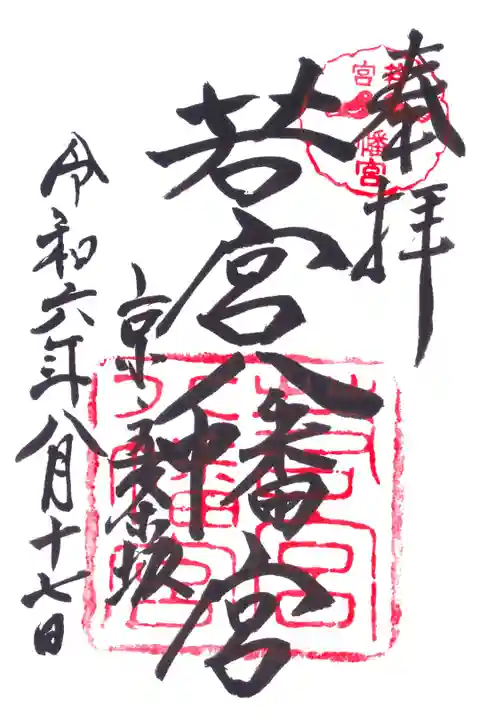 奉拝
若宮八幡宮
京、五條坂
令和六年八月十七日
若宮
八幡宮